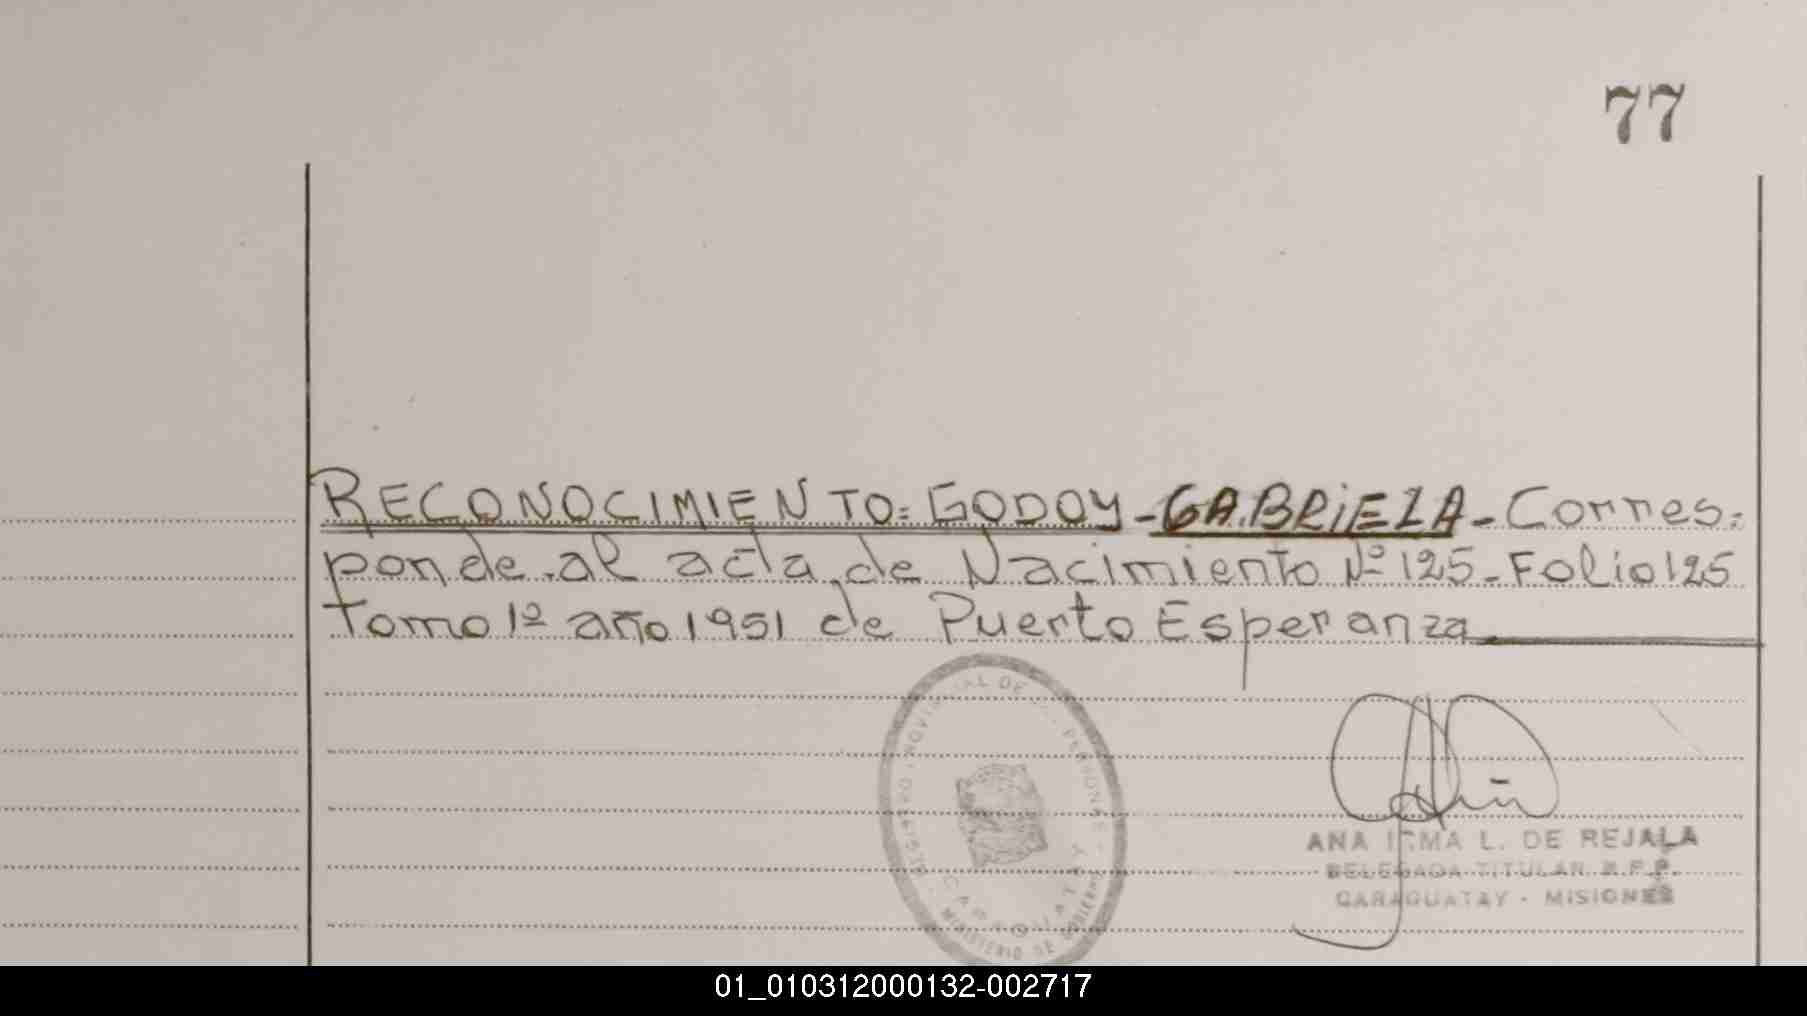 77
RECONOCIMIENTO= GODOY - GABRIELA - Corres=
ponde al acta de Nacimiento Nº 125 - Folio 125
Tomo 1º año 1951 de Puerto Esperanza
REGISTRO PROVINCIAL DE PERSONAS
CARAGUATAY
MINISTERIO DE GOBIERNO
ANA IRMA L. DE REJALA
DELEGADA TITULAR R.P.P.
CARAGUATAY - MISIONES
01_010312000132-002717